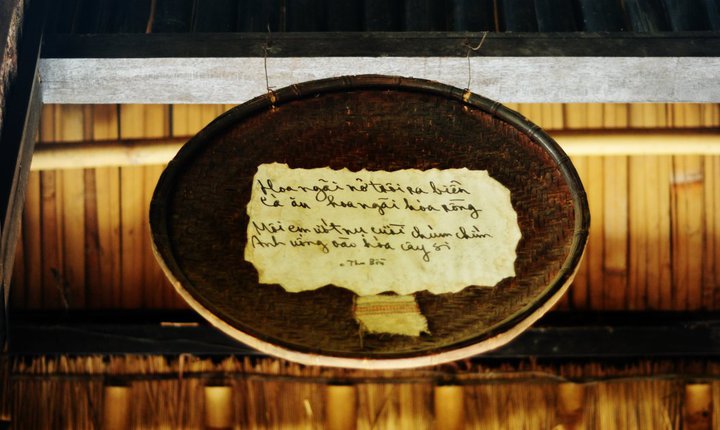 Hoa ngãi nở trôi ra biển
Cá ăn hoa ngãi hóa rồng
Môi em ướt nụ cười chúm chím
Anh uống vào hóa cây si